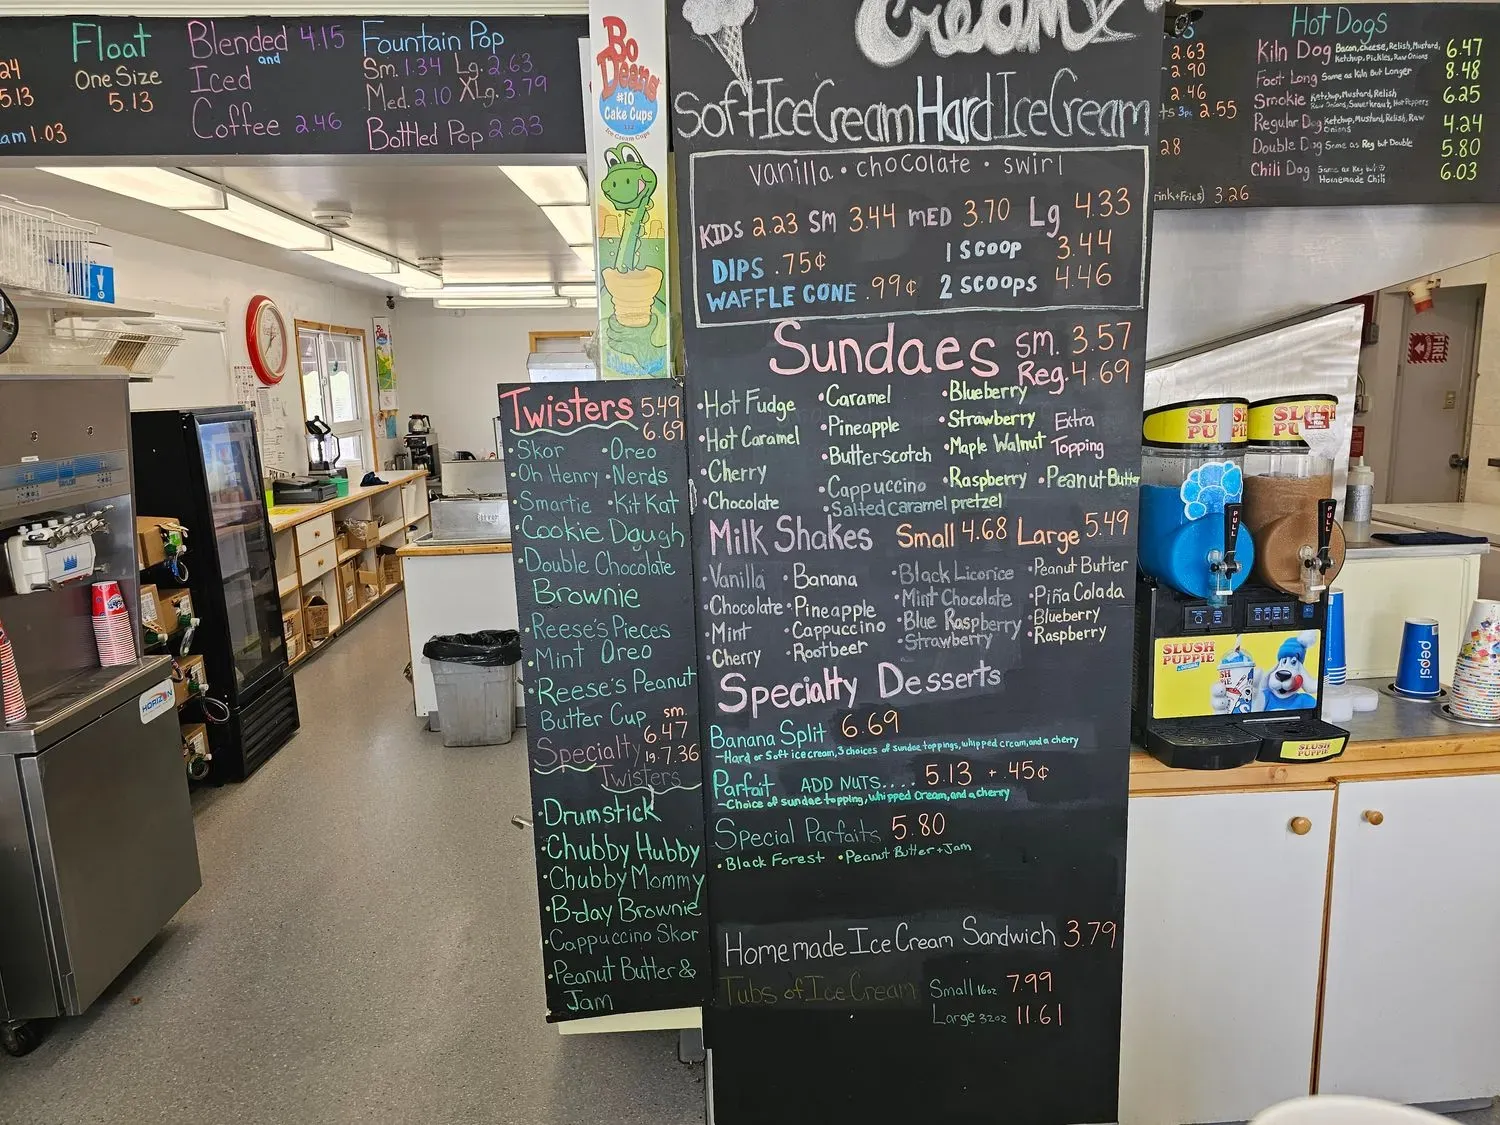 Float
One Size
5.13
24
5.13
am 1.03
Blended 4.15
and
Iced
Coffee 2.46
Fountain Pop
Sm. 1.34 Lg. 2.63
Med. 2.10 XLg. 3.79
Bottled Pop 2.23
Bo
Deans
#10
Cake Cups
Ice Cream Cups
Cream
Soft Ice Cream Hard Ice Cream
vanilla • chocolate • swirl
KIDS 2.23 SM 3.44 MED 3.70 Lg 4.33
DIPS .75¢ 1 SCOOP 3.44
WAFFLE CONE .99¢ 2 SCOOPS 4.46
Sundaes Sm. 3.57
Reg. 4.69
•Hot Fudge •Caramel •Blueberry
•Hot Caramel •Pineapple •Strawberry Extra
•Cherry •Butterscotch •Maple Walnut Topping
•Chocolate •Cappuccino •Raspberry •Peanut Butter
•Salted Caramel pretzel
Milk Shakes Small 4.68 Large 5.49
•Vanilla •Banana •Black Licorice •Peanut Butter
•Chocolate •Pineapple •Mint Chocolate •Piña Colada
•Mint •Cappuccino •Blue Raspberry •Blueberry
•Cherry •Rootbeer •Strawberry •Raspberry
Specialty Desserts
Banana Split 6.69
-Hard or Soft ice cream, 3 choices of sundae toppings, whipped cream, and a cherry
Parfait ADD NUTS.... 5.13 + .45¢
-Choice of sundae topping, whipped cream, and a cherry
Special Parfaits 5.80
•Black Forest •Peanut Butter + Jam
Homemade Ice Cream Sandwich 3.79
Tubs of Ice Cream Small 16oz 7.99
Large 32oz 11.61
Twisters 5.49
6.69
•Skor •Oreo
•Oh Henry •Nerds
•Smartie •Kit Kat
•Cookie Dough
•Double Chocolate
Brownie
•Reese's Pieces
•Mint Oreo
•Reese's Peanut
Butter Cup sm. 6.47
Specialty lg. 7.36
Twisters
•Drumstick
•Chubby Hubby
•Chubby Mommy
•B-day Brownie
•Cappuccino Skor
•Peanut Butter &
Jam
2.63
2.90
2.46
ts 3pc 2.55
28
rink+Fries) 3.26
Hot Dogs
Kiln Dog Bacon, cheese, Relish, Mustard, Ketchup, Pickles, Raw Onions 6.47
Foot Long Same as Kiln but Longer 8.48
Smokie Ketchup, Mustard, Relish Raw Onions, Sauerkraut, Hot Peppers 6.25
Regular Dog Ketchup, Mustard, Relish, Raw Onions 4.24
Double Dog Same as Reg but Double 5.80
Chili Dog Same as Reg but w/ Homemade Chili 6.03
FIRE
SLUSH
PUPPIE
PULL
PULL
SLUSH
PUPPIE
SLUSH
PUPPIE
pepsi
HORIZON
TAYLOR